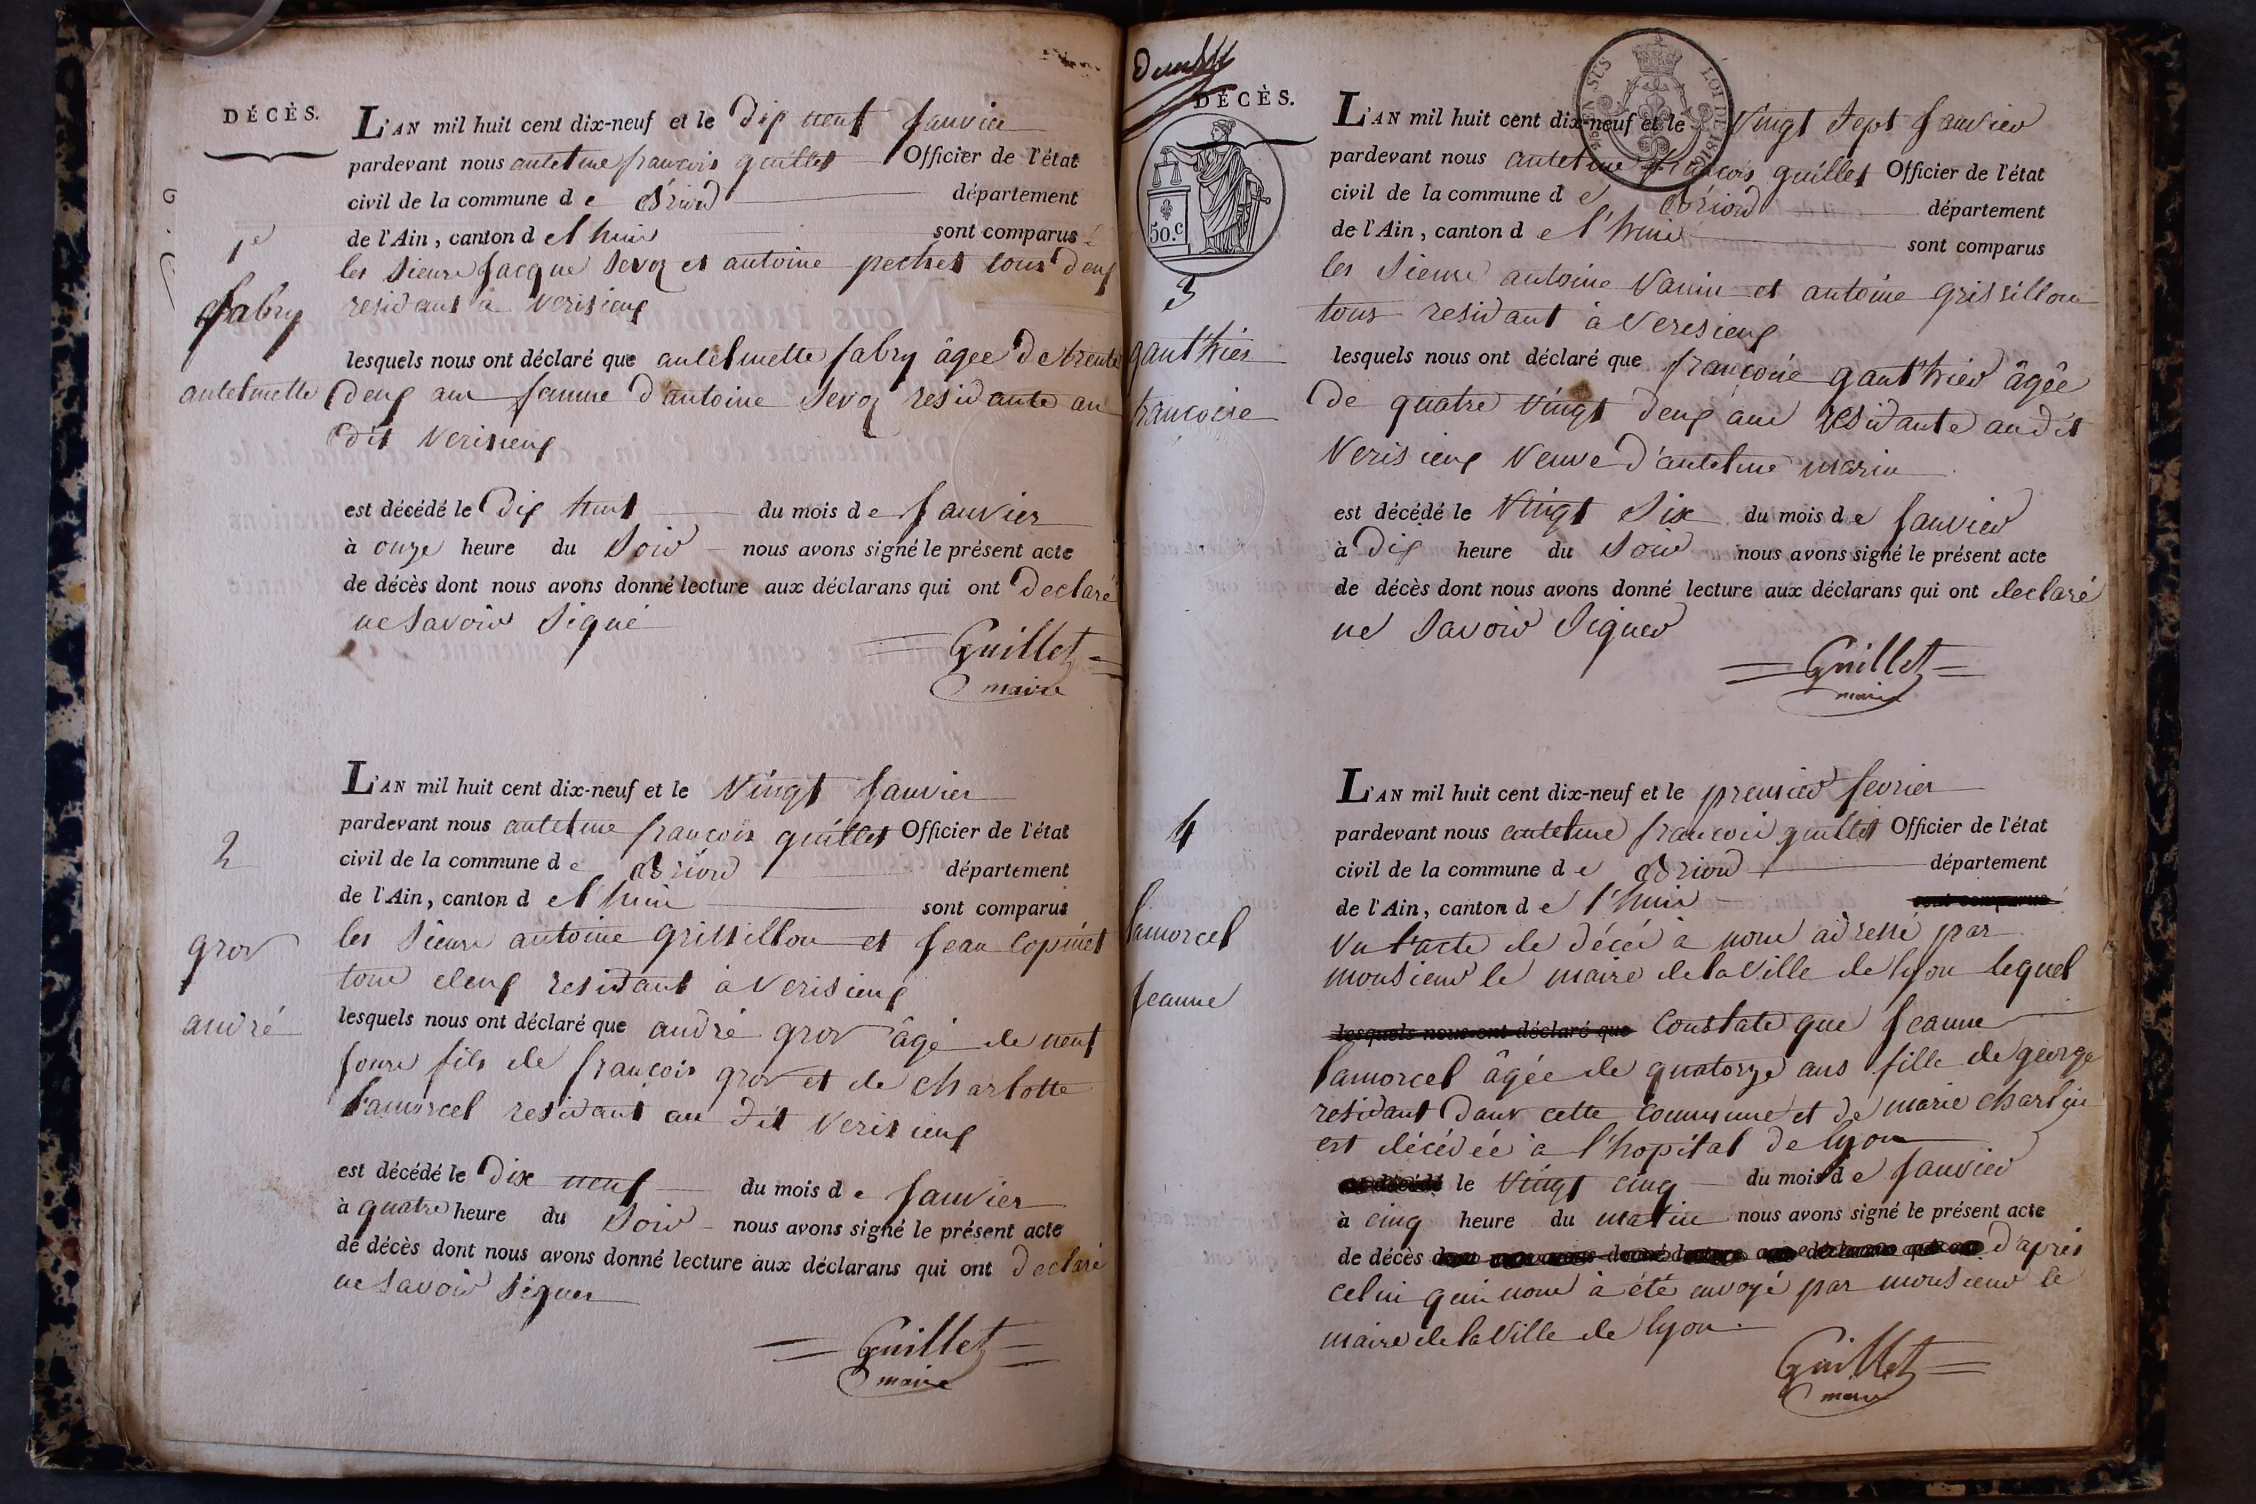 DÉCÈS.
1e
fabry
antelmette
L'AN mil huit cent dix-neuf et le dix neuf janvier
pardevant nous antelme françois guillet Officier de l'état
civil de la commune de Briord département
de l'Ain, canton de l'huis sont comparus
les sieurs jacque sevoz et antoine pechet tous deux
residant à verisieux
lesquels nous ont déclaré que antelmette fabry âgée de trente
deux ans femme d'antoine sevoz residante au
dit verisieux
est décédé le dix huit du mois de janvier
à onze heure du soir nous avons signé le présent acte
de décès dont nous avons donné lecture aux déclarans qui ont declaré
ne savoir signé
Guillet
maire
2
gros
andré
L'AN mil huit cent dix-neuf et le vingt janvier
pardevant nous antelme françois guillet Officier de l'état
civil de la commune de Briord département
de l'Ain, canton de l'huis sont comparus
les sieurs antoine grissillon et jean Copinet
tous deux residant à verisieux
lesquels nous ont déclaré que andré gros âgé de neuf
jours fils de françois gros et de charlotte
lamorcel residant au dit verisieux
est décédé le dix neuf du mois de janvier
à quatre heure du soir nous avons signé le présent acte
de décès dont nous avons donné lecture aux déclarans qui ont declaré
ne savoir signer
Guillet
maire
DÉCÈS.
50.c
LOI DE 1816
3
gant'hier
francoise
L'AN mil huit cent dix-neuf et le vingt sept janvier
pardevant nous antelme françois guillet Officier de l'état
civil de la commune de Briord département
de l'Ain, canton de l'huis sont comparus
les sieurs antoine vanin et antoine grissillon
tous residant à veresieux
lesquels nous ont déclaré que françoise gant'hier âgée
de quatre vingt deux ans residante au dit
verisieux veuve d'antelme marin
est décédé le vingt six du mois de janvier
à dix heure du soir nous avons signé le présent acte
de décès dont nous avons donné lecture aux déclarans qui ont declaré
ne savoir signer
Guillet
maire
4
lamorcel
jeanne
L'AN mil huit cent dix-neuf et le premier fevrier
pardevant nous antelme françois guillet Officier de l'état
civil de la commune de Briord département
de l'Ain, canton de l'huis sont comparus
vu l'acte de décès à nous adressé par
monsieur le maire de la ville de lyon lequel
lesquels nous ont déclaré que Constate que jeanne
lamorcel âgée de quatorze ans fille de george
residant dans cette commune et de marie charlin
est décédée à l'hopital de lyon
le vingt cinq du mois de janvier
à cinq heure du matin nous avons signé le présent acte
de décès d'après
celui qui nous à été envoyé par monsieur le
maire de la ville de lyon.
Guillet
maire